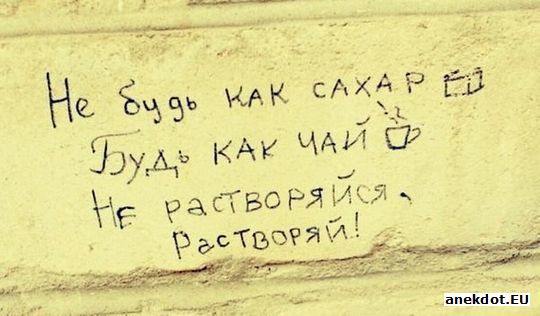 Не будь как сахар
Будь как чай
Не растворяйся,
растворяй!
anekdot.EU